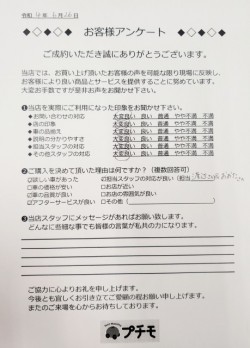 ◆◇◆◇ お客様アンケート ◆◇◆◇
ご成約いただき誠にありがとうございます。
当店では、お買い上げ頂いたお客様の声を可能な限り現場に反映し、
お客様により良い商品とサービスを提供することに努めています。
大変お手数ですが是非お声をお聞かせ下さい。
①当店を実際にご利用になった印象をお聞かせ下さい。
◆お問い合わせの対応 大変良い 良い 普通 やや不満 不満
◆店の印象 大変良い 良い 普通 やや不満 不満
◆車の品揃え 大変良い 良い 普通 やや不満 不満
◆説明の分かりやすさ 大変良い 良い 普通 やや不満 不満
◆担当スタッフの対応 大変良い 良い 普通 やや不満 不満
◆その他スタッフの対応 大変良い 良い 普通 やや不満 不満
②ご購入を決めて頂いた理由は何ですか？（複数回答可）
□欲しい車があった 担当スタッフの対応が良い（担当
□車の価格が安い □お店が近い
□車の品質が良い □お店の雰囲気が良い
□アフターサービスが良い □その他（ ）
③当店スタッフにメッセージがあればお願い致します。
どんなに些細な事でも皆様の言葉が私共の力になります。
ご協力に心よりお礼を申し上げます。
今後とも宜しくお引き立てご愛顧の程お願い申し上げます。
またのご来場を心からお待ちしております。
プチモ